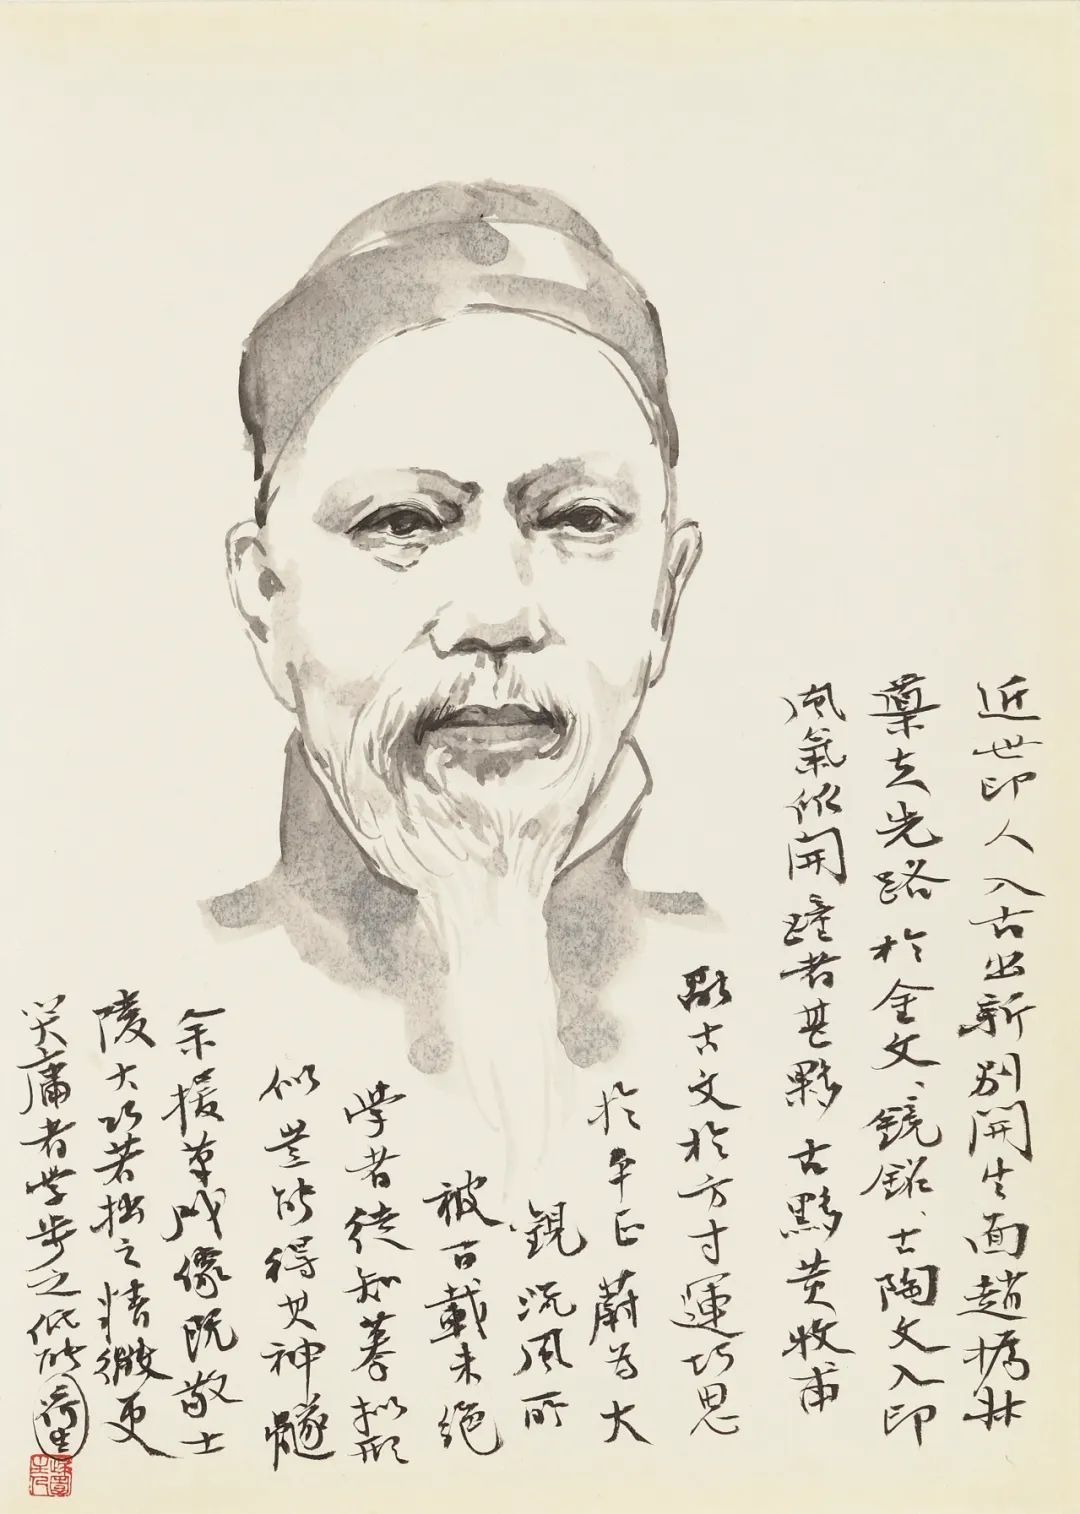 近世印人入古出新別開生面趙撝叔
夫先路於金文、鏡銘、陶文入印
風氣似開踵者甚夥古黟黃牧甫
融古文於方寸運巧思
於平正蔚為大
觀流風所
被百載未絕
學者徒知摹擬形
似豈能得其神髓
余援筆成像既敬士
陵大巧若拙之精微更
笑庸者學步之低能